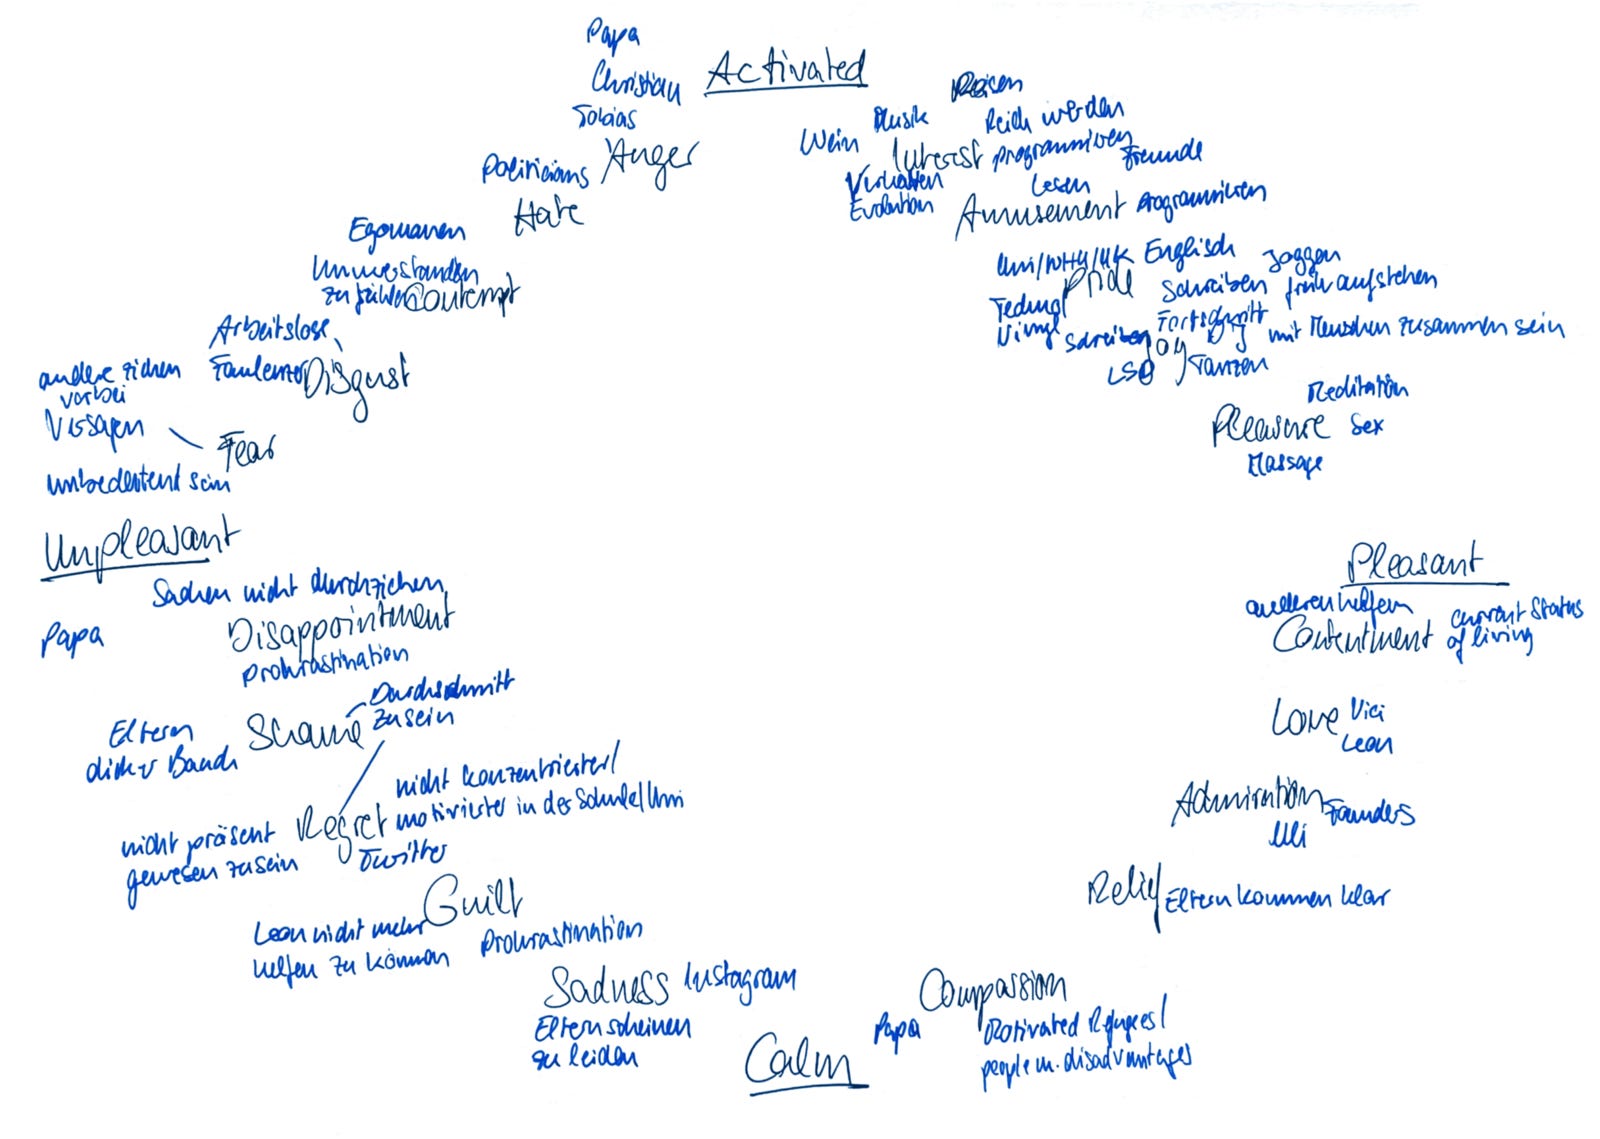 Papa
Christian
Activated
Tobias
Anger
Politicians
Hate
Egomanen
Unverstanden
zu fühlen
Contempt
Arbeitslose
Faulenzer
Disgust
andere ziehen
vorbei
Versagen
Fear
unbedeutend sein
Unpleasant
Reisen
Musik
Reich werden
Wein
Interest
programmieren
Freunde
Verhalten
Evolution
Lesen
Amusement
Programmieren
Uni/WHU/UK
Englisch
Joggen
Pride
Schreiben
früh aufstehen
Vim
Schreiben
Fortschritt
Joy
DJ
mit Menschen zusammen sein
LSD
Tanzen
Meditation
Pleasure
Sex
Massage
Pleasant
anderen helfen
Contentment
current status
of living
Love
Vici
Leon
Admiration
Founders
Uli
Relief
Eltern kommen klar
Compassion
Papa
Motivated Refugees/
people w. disadvantages
Calm
Sachen nicht durchziehen
Papa
Disappointment
Prokrastination
Durchschnitt
zu sein
Eltern
Shame
dicker Bauch
nicht konzentrierter/
motivierter in der Schule/Uni
nicht präsent
gewesen zu sein
Regret
Twitter
Guilt
Leon nicht mehr
helfen zu können
Prokrastination
Sadness
Instagram
Eltern scheinen
zu leiden